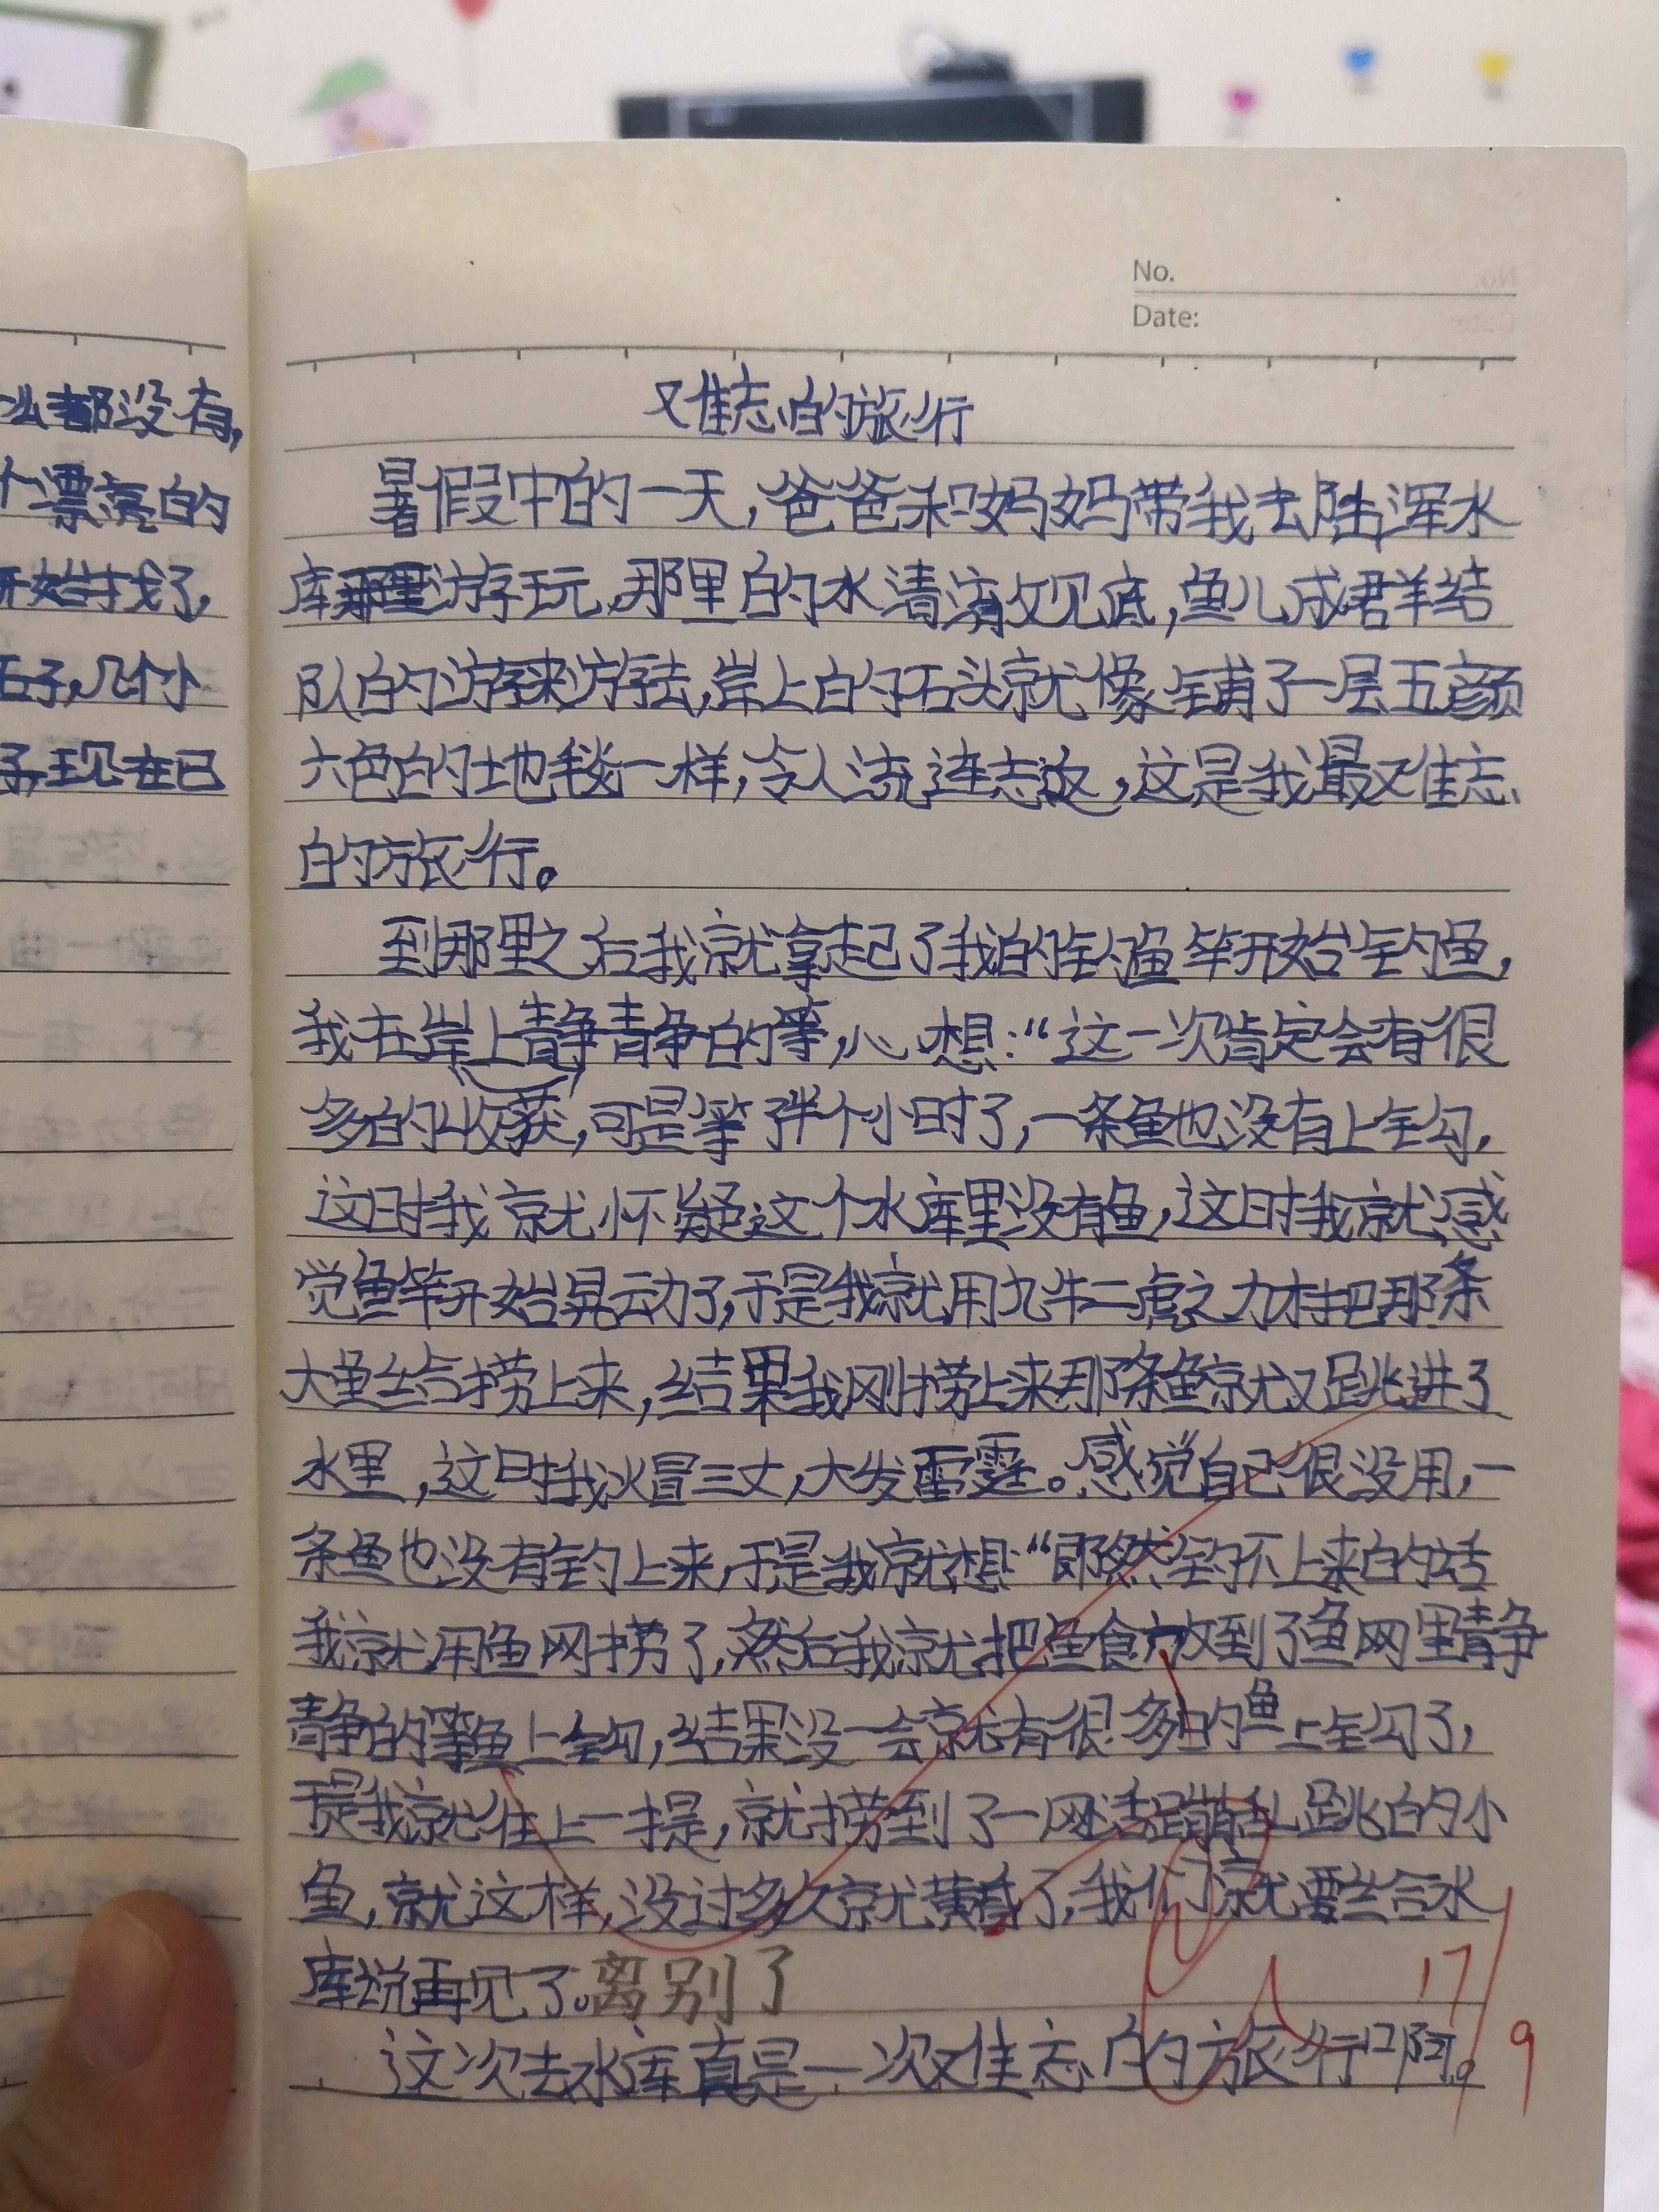 么都没有,
个漂亮的
开始找了,
石子,几个小
子,现在已
No.
Date:
难忘的旅行
暑假中的一天,爸爸和妈妈带我去陆浑水
库游玩,那里的水清澈见底,鱼儿成群结
队的游来游去,岸上的石头就像铺了一层五颜
六色的地毯一样,令人流连志返,这是我最难志
的旅行。
到那里之后我就拿起了我的钓鱼竿开始钓鱼,
我在岸上静静的等,心想:“这一次肯定会有很
多的收获,可是等半个小时了,一条鱼也没有上钩,
这时我就怀疑这个水库里没有鱼,这时我就感
觉鱼竿开始晃动了,于是我就用九牛二虎之力才把那条
大鱼给捞上来,结果我刚捞上来那条鱼就又跳进了
水里,这时我火冒三丈,大发雷霆。感觉自己很没用,一
条鱼也没有钓上来,于是我就想:“即然钓不上来的话
我就用鱼网捞了,然后我就把鱼食放到了鱼网里静
静的等鱼上钩,结果没一会就有很多的鱼上钩了,
于是我就往上一提,就捞到了一网活蹦乱跳的小
鱼,就这样,没过多久就黄昏了,我们就要给水
库说再见了。离别了
这次去水库真是一次难忘的旅行啊。
17/9